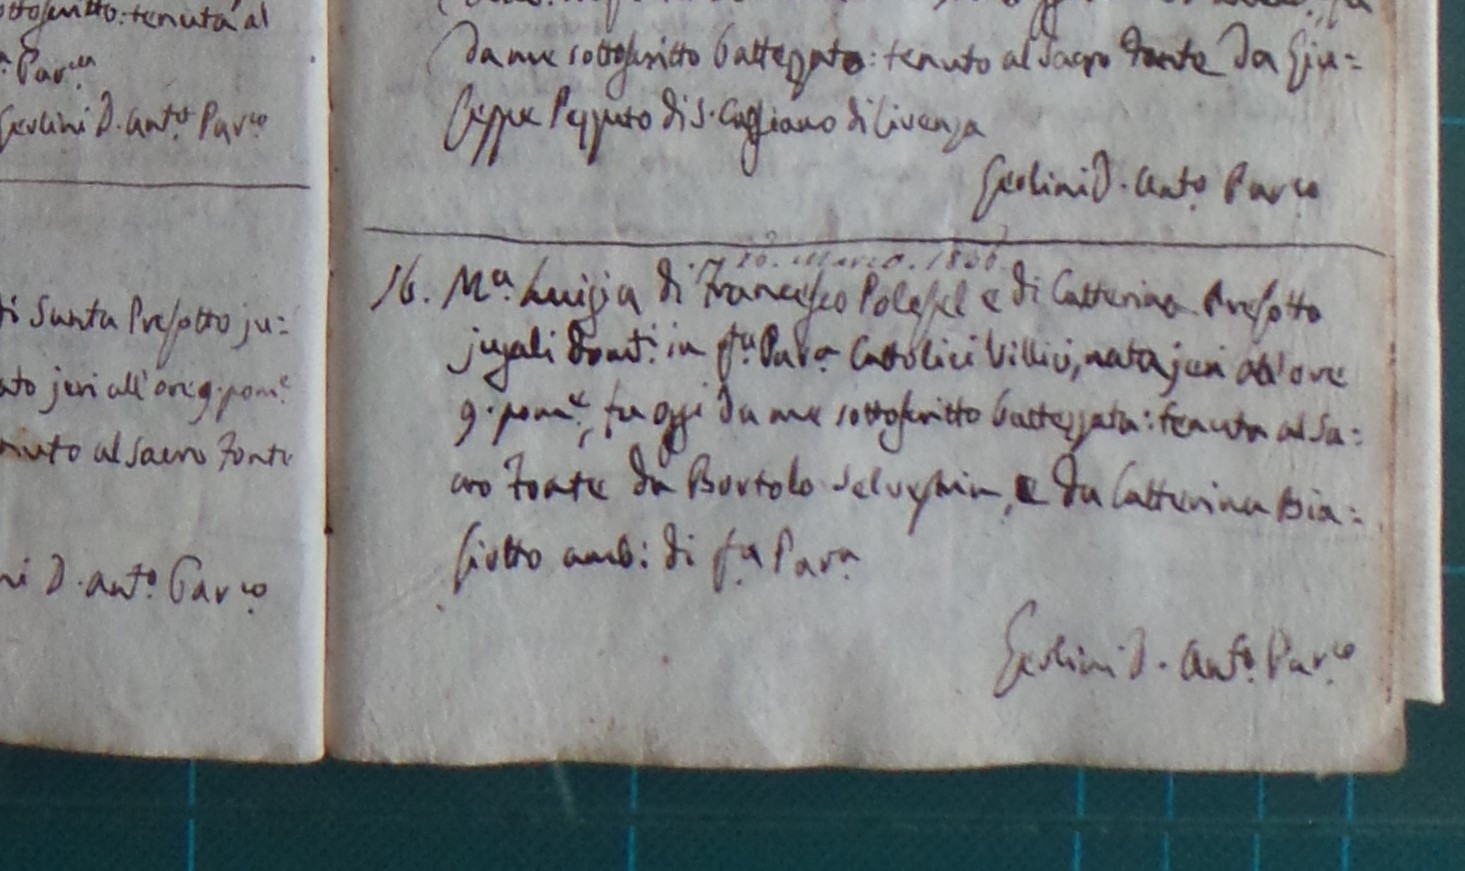 ottoscritto: tenuta al
Par.cia
Gerlini D. Ant.o Par.co
Santa Presotto ju=
ato jeri all'ore 9. pom.e
nuto al Sacro Fonte
ni D. Ant.o Par.co
da me sottoscritto battezzato: tenuto al Sacro Fonte da Giu=
seppe Pezzuto di S. Cassiano di Livenza
Gerlini D. Ant.o Par.co
16. Marzo. 1836
16. M.a Luigia di Francesco Polesel e di Catterina Presotto
jugali domi.ti in q.ta Par.a Cattolici Villici, nata jeri all'ore
9. pom.e, fu oggi da me sottoscritto battezzata: tenuta al Sa=
cro Fonte da Bortolo Selveghin, e da Catterina Bia=
siotto amb: di q.ta Par.a
Gerlini D. Ant.o Par.co